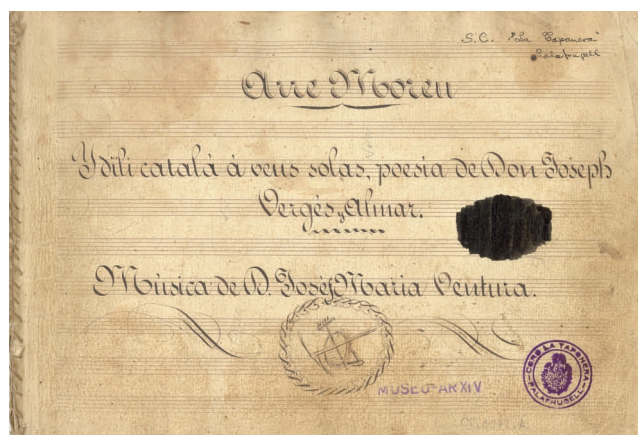 S.C. "La Taponera"
Palafrugell
Arre Moreu
Ydili catalá á veus solas, poesia de Don Joseph
Vergés y Almar.
Música de D. José Maria Ventura.
MUSEU-ARXIV
CORO LA TAPONERA
PALAFRUGELL